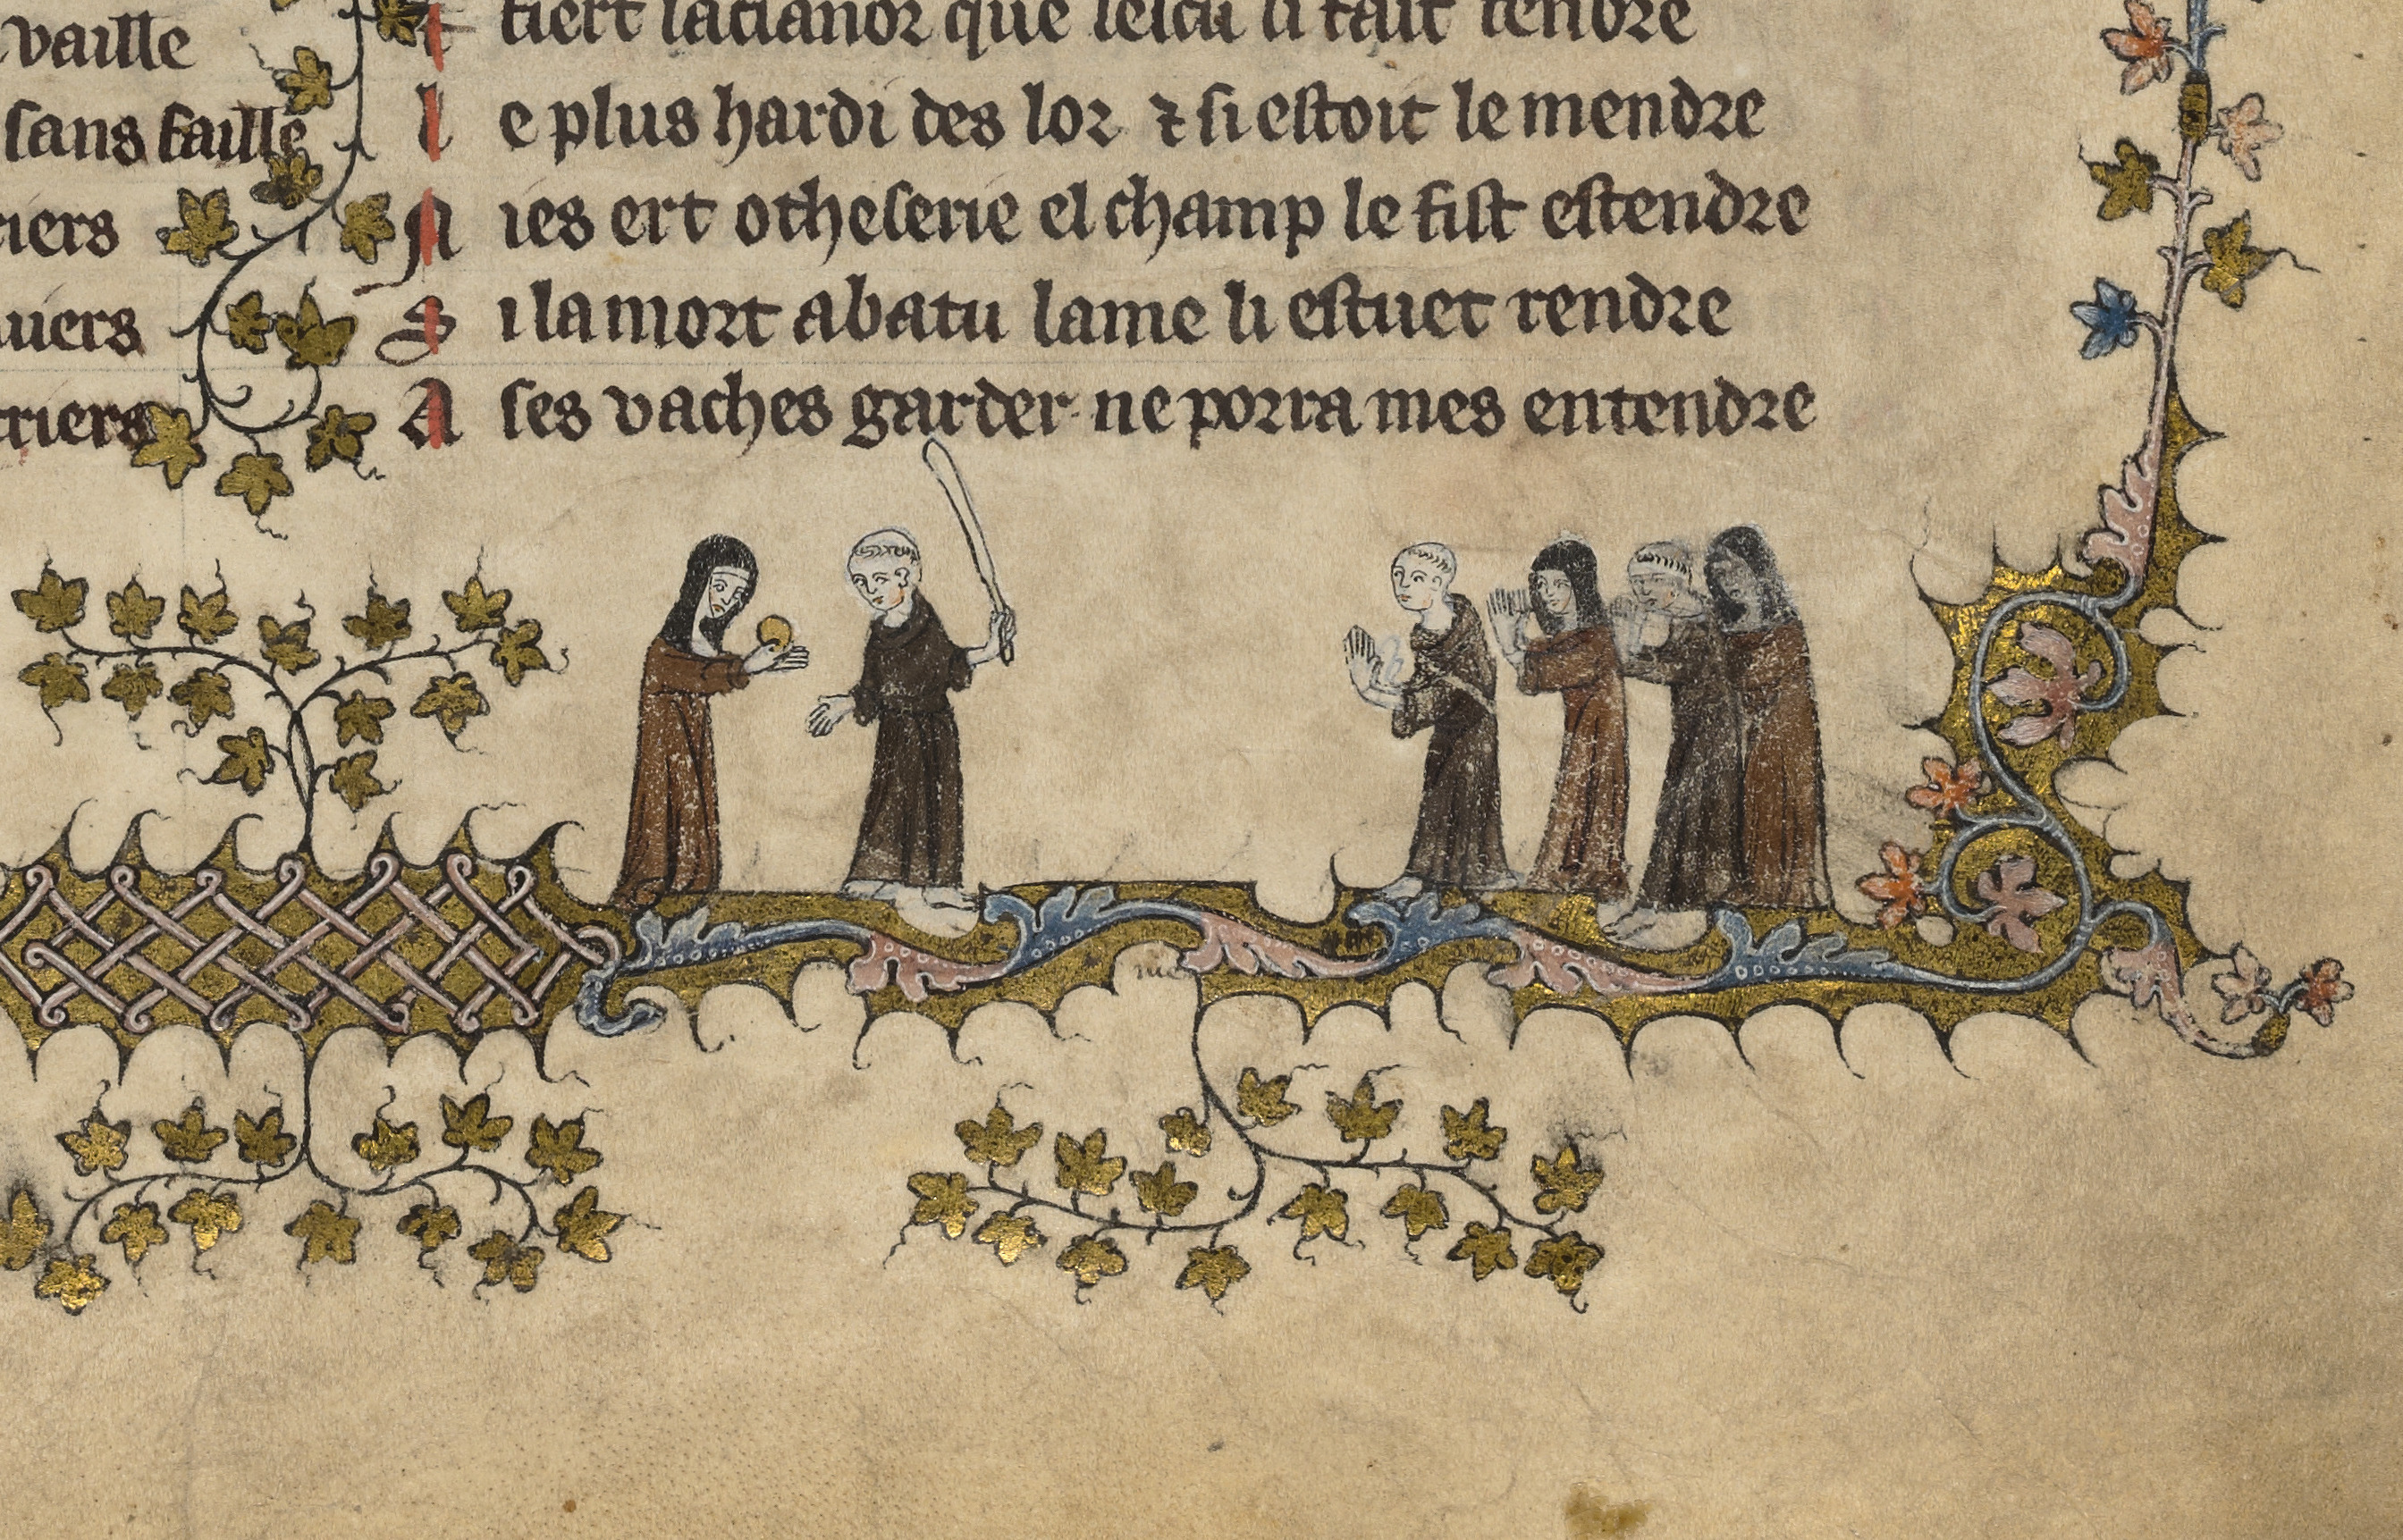 vaille
sans faille
riers
uiers
triers
tiert lacianor que lescu li fait fendre
l e plus hardi des lor ⁊ si estoit le mendre
M ies ert otheserie el champ le fist estendre
S i la mort abatu lame li estuet rendre
A ses vaches garder ne porra mes entendre